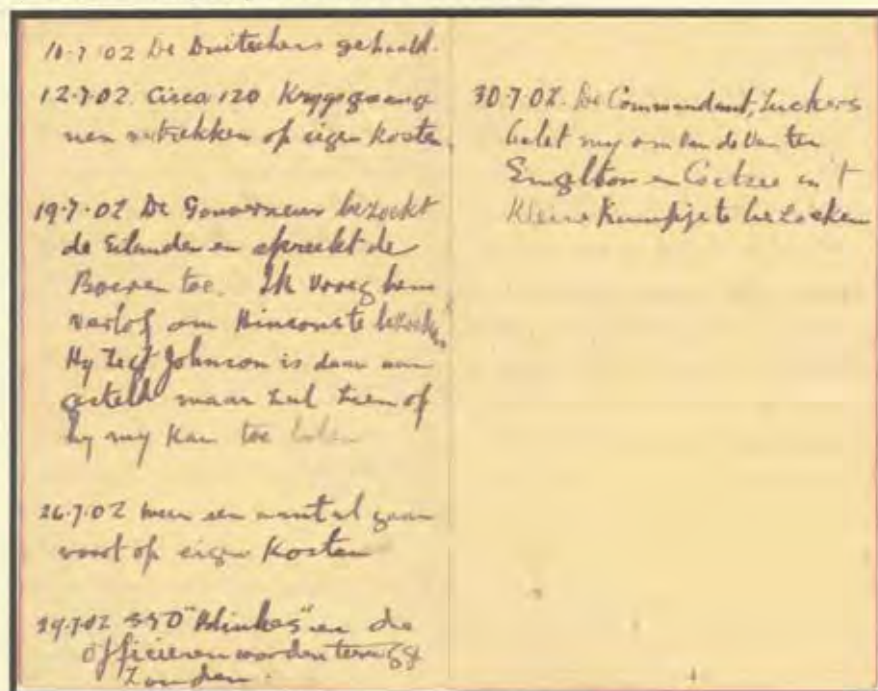 10-7-02 De Duitschers gehaald.
12-7-02. Circa 120 Krygsgevange
nen vertrekken op eigen kosten.
19-7-02 De Gouverneur bezoekt
de Eilanden en spreekt de
Boeren toe. Ik vroeg hem
verlof om te bezoeken
Hy zegt Johnson is daar aan
gesteld maar zal zien of
hy my kan toe laten
26-7-02 weer een aantal gaan
voort op eigen Kosten
29-7-02 350 "Blinkes" en de
officieren worden terug ge
zonden.
30-7-02. De Commandant,
belet my om
en Coetzee in 't
Kleine Kampje te bezoeken